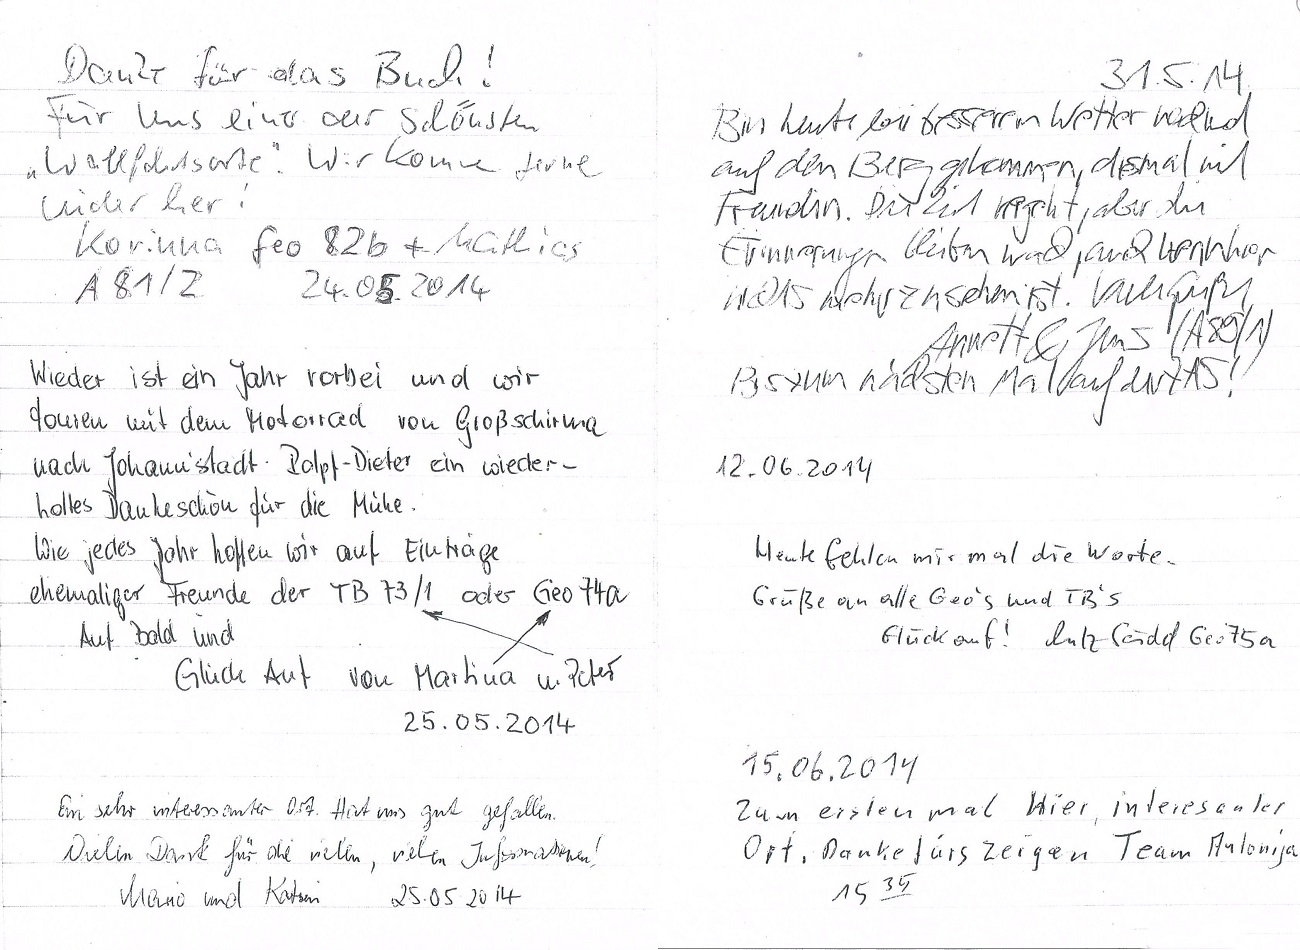 Danke für das Buch!
Für uns eine der schönsten
„Wallfahrtsorte“. Wir komme gerne
wider her!
Korinna Geo 82b + Mathias
A 81/2 24.05.2014
Wieder ist ein Jahr vorbei und wir
touren mit dem Motorrad von Großschirma
nach Johann'stadt. Ralph-Dieter ein wieder-
holtes Dankeschön für die Mühe.
Wie jedes Jahr hoffen wir auf Einträge
ehemaliger Freunde der TB 73/1 oder Geo 74a
Auf bald und
Glück Auf von Martina u. Peter
25.05.2014
Ein sehr interessanter Ort. Hat uns gut gefallen.
Vielen Dank für die vielen, vielen Informationen!
Mario und Katrin 25.05 2014
31.5.14
Bin heute bei besserem Wetter nochmal
auf den Berg gekommen, diesmal mit
Freundin. Die Zeit vergeht, aber die
Erinnerungen bleiben wach, auch wenn hier
nichts mehr zu sehen ist. Viele Grüße,
Annett & Jens (A89/1)
Bis zum nächsten Mal auf der AS!
12.06.2014
Heute fehlen mir mal die Worte.
Grüße an alle Geo's und TB's
Glück auf! Lutz Geo 75a
15.06.2014
Zum ersten mal Hier, interesanter
Ort. Danke fürs zeigen Team Antonija
15 35